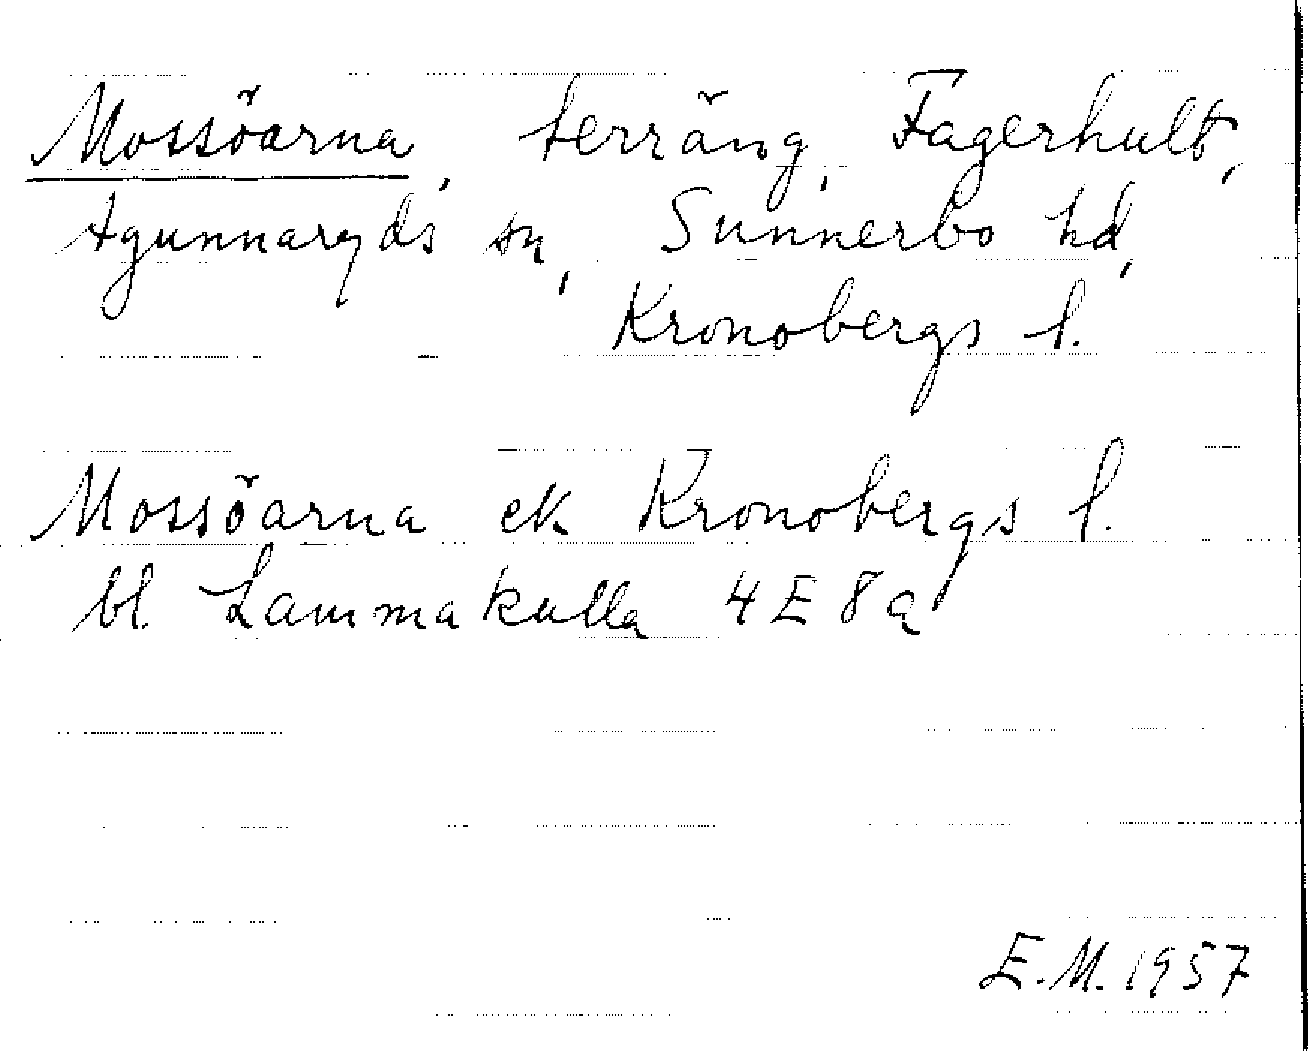 Mossöarna, terräng, Fagerhult,
Agunnaryds sn, Sunnerbo hd,
Kronobergs l.
Mossöarna ek Kronobergs l.
bl. Lammakulla 4E8a
E.M. 1957